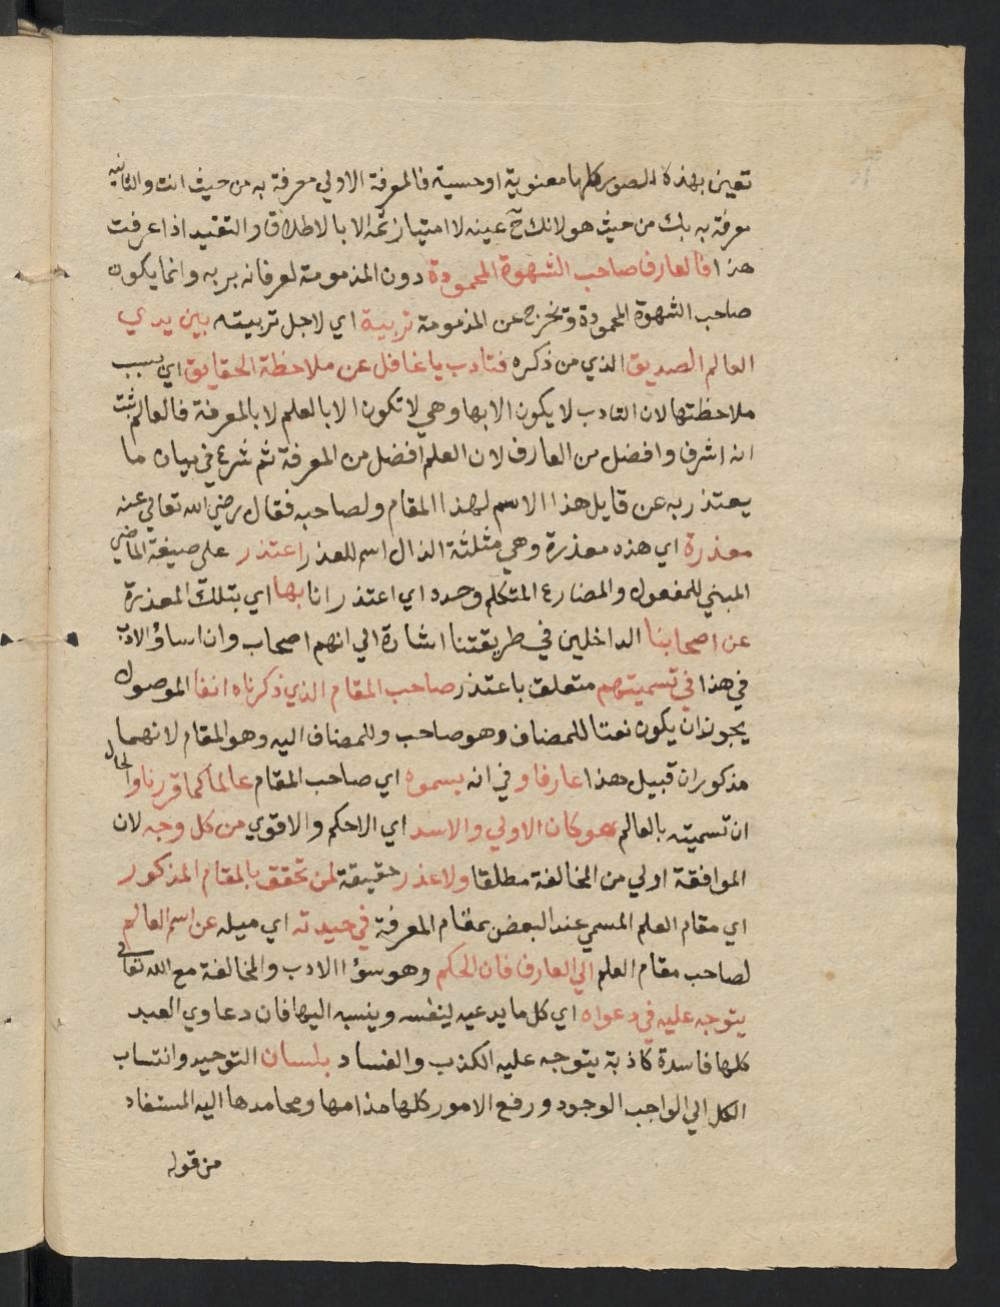 تعين بهذه الصور كلها معنوية او حسية فالمعرفة الاولي معرفة به من حيث انت والثانيه
معرفة به بك من حيث هو لانك ح عينه لا امتياز ثمه الا بالاطلاق والتقيد اذا عرفت
هذا فالعارف صاحب الشهوة المحمودة دون المذمومة لعرفانه بربه وانما يكون
صاحب الشهوة المحمودة وتخرج عن المذمومة تربية اي لاجل تربيته بين يدي
العالم الصديق الذي من ذكره فتادب يا غافل عن ملاحظة الحقايق اي بسبب
ملاحظتها لان التادب لا يكون الا بها وهي لا تكون الا بالعلم لا بالمعرفة فالعالم ثبت
انه اشرف وافضل من العارف لان العلم افضل من المعرفة ثم شرع في بيان ما
يعتذر به عن قايل هذا الاسم لهذا المقام ولصاحبه فقال رضي الله تعالي عنه
معذرة اي هذه معذرة وهي مثلثة الذال اسم للعذر اعتذر علي صيغة الماضي
المبني للمفعول والمضارع المتكلم وحده اي اعتذر انا بها اي بتلك المعذرة
عن اصحابنا الداخلين في طريقتنا اشارة الي انهم اصحاب وان اساؤ الادب
في هذا في تسميتهم متعلق باعتذر صاحب المقام الذي ذكرناه انفا الموصول
يجوز ان يكون نعتا للمضاف وهو صاحب وللمضاف اليه وهو المقام لانهما
مذكوران قبيل هذا عارفا و في انه يسموه اي صاحب المقام عالما كما قررنا والحال
ان تسميته بالعالم هو كان الاولي والاسد اي الاحكم والاقوي من كل وجه لان
الموافقة اولي من المخالفة مطلقا ولا عذر حقيقة لمن تحقق بالمقام المذكور
اي مقام العلم المسمي عند البعض بمقام المعرفة في حيدته اي ميله عن اسم العالم
لصاحب مقام العلم الي العارف فان الحكم وهو سؤ الادب والمخالفة مع الله تعالي
يتوجه عليه في دعواه اي كل ما يدعيه لنفسه وينسبه اليها فان دعاوي العبد
كلها فاسدة كاذبة يتوجه عليه الكذب والفساد بلسان التوحيد وانتساب
الكل الي الواجب الوجود ورفع الامور كلها مذامها ومحامدها اليه المستفاد
من قوله